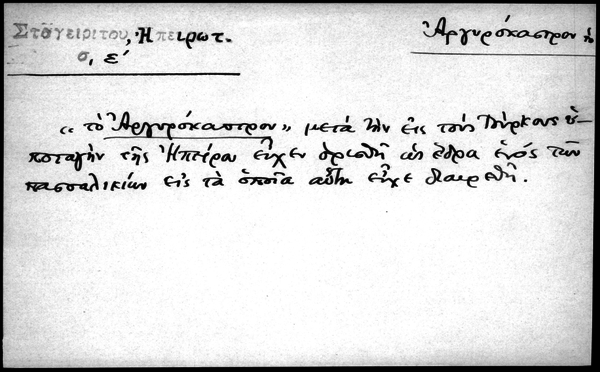 Σταγειρίτου, Ἠπειρωτ.
σ, ε΄
Ἀργυρόκαστρον τὸ
« τὸ Ἀργυρόκαστρον » μετὰ τὴν εἰς τοὺς Τούρκους ὑ-
ποταγὴν τῆς Ἠπείρου εἶχεν ὁρισθῆ ὡς ἕδρα ἑνὸς τῶν
πασαλικίων εἰς τὰ ὁποῖα αὕτη εἶχε διαιρεθῆ.